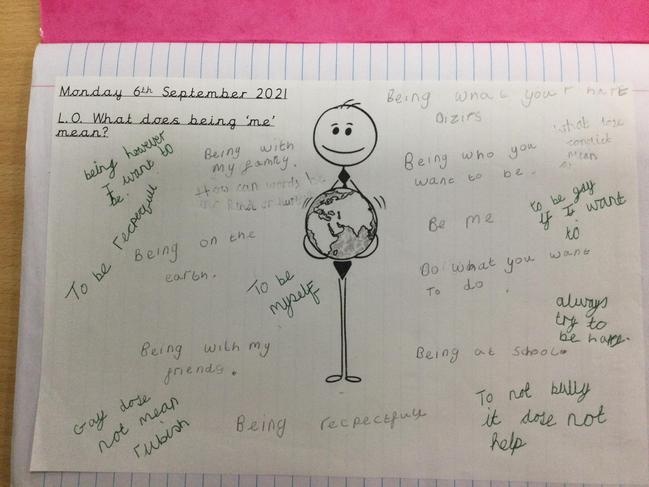 Monday 6th September 2021
L.O. What does being 'me'
mean?
being however
I want to
be.
Being with
my family.
How can words be
To be recpectfull
Being on the
earth.
To be
myself
Being with my
friends.
Gay dose
not mean
rubish
Being recpectfull
Being what your hart
Dizirs
what dose
mean
Being who you
want to be.
to be gay
if I want
to
Be me
Do what you want
To do.
always
try to
be happy.
Being at school.
To not bully
it dose not
help